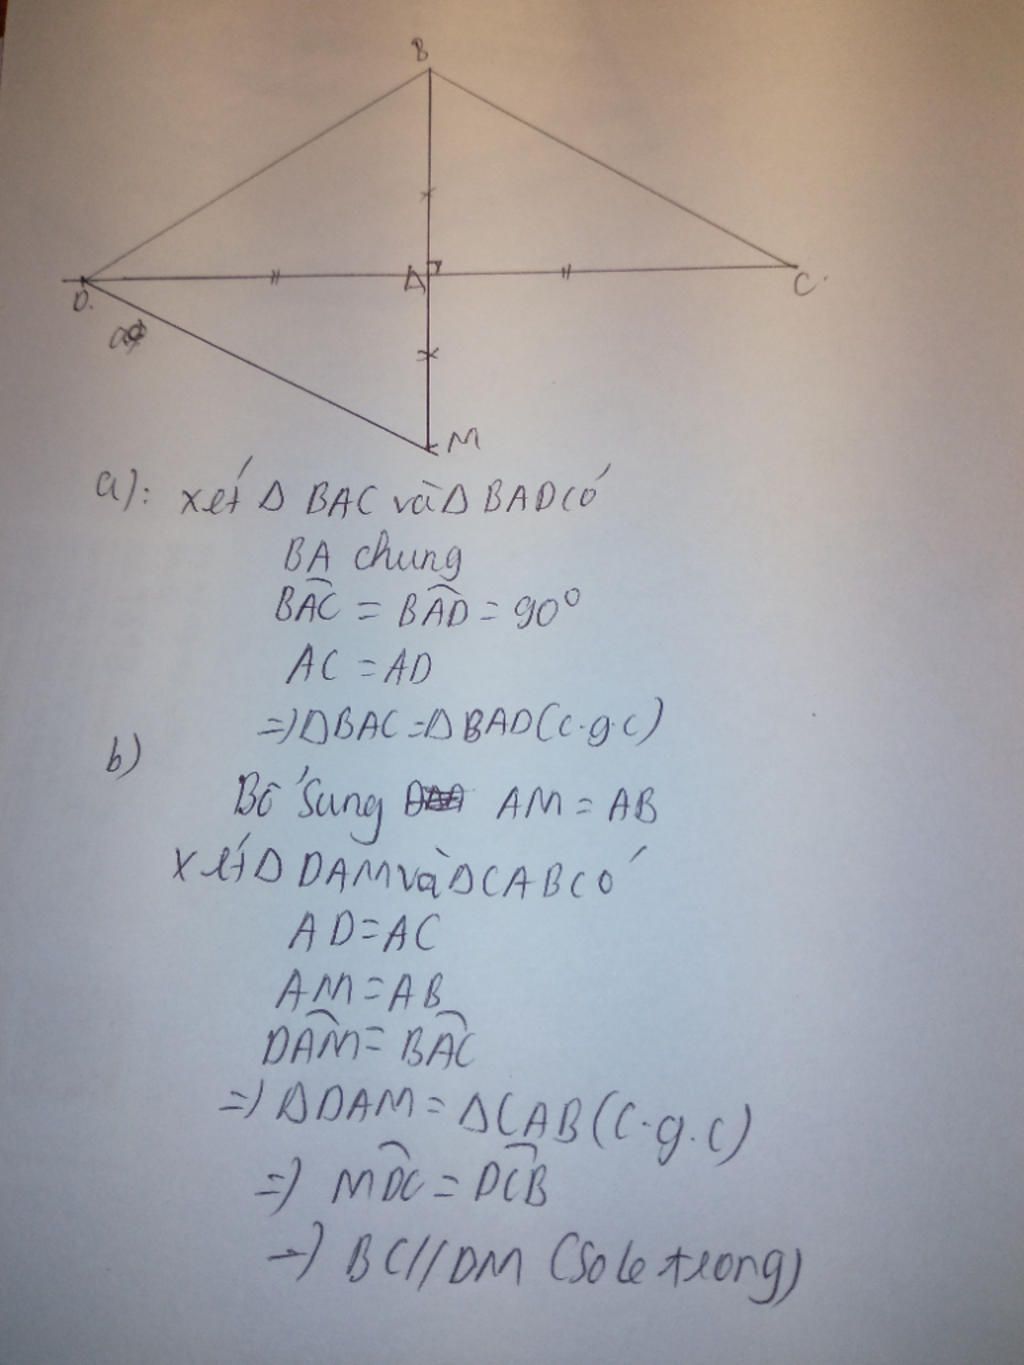 B
A
D.
C.
M
a): xét Δ BAC và Δ BAD có
BA chung
BAC = BAD = 90°
AC = AD
=> ΔBAC = ΔBAD (c.g.c)
b)
Bổ sung AM = AB
xét Δ DAM và Δ CAB có
AD = AC
AM = AB
DAM = BAC
=> Δ DAM = Δ CAB (c.g.c)
=> MDC = DCB
=> BC // DM (so le trong)